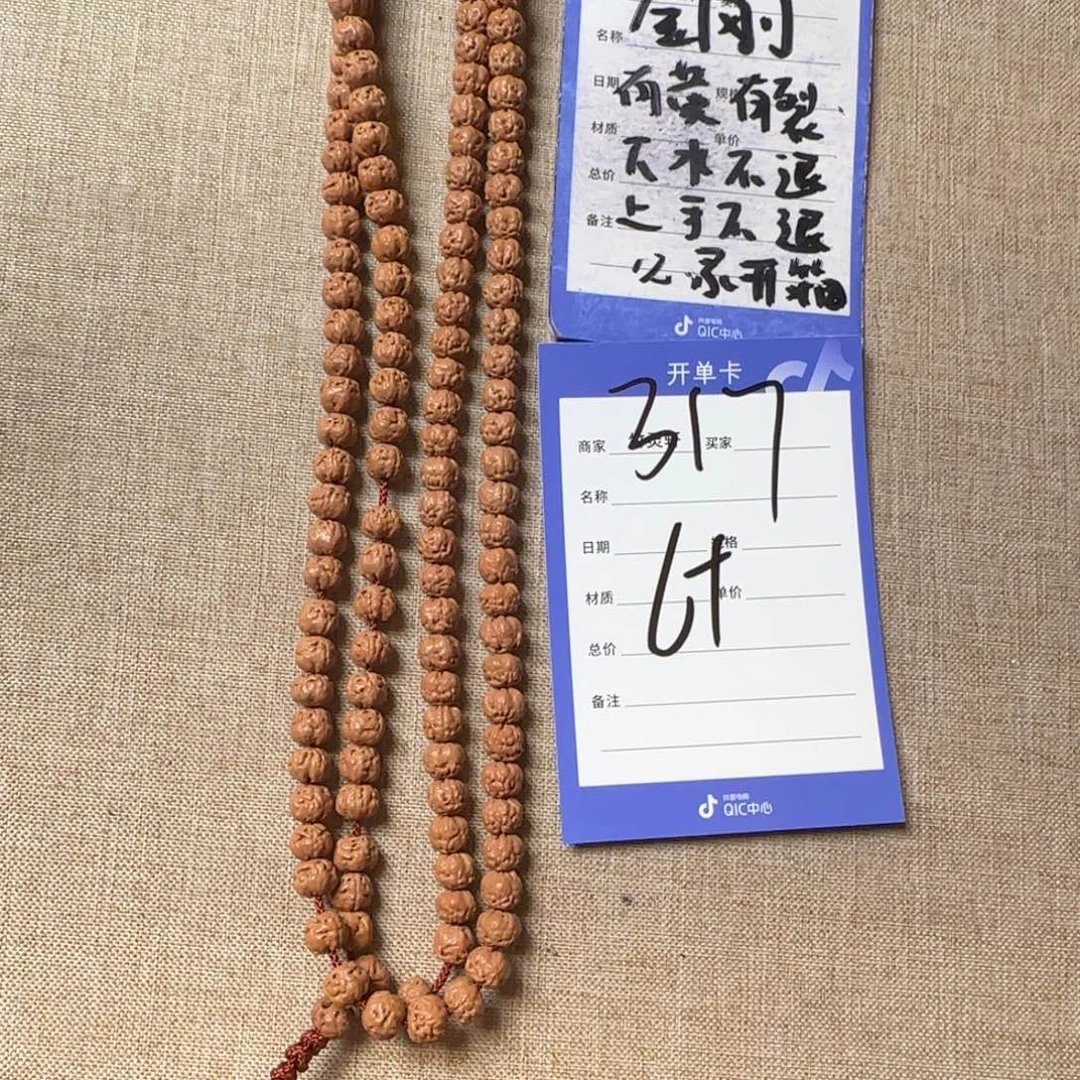 名称 金刚
日期 有黄 规格 有裂
材质 下水不退 单价
总价
备注 上手不退
必录开箱
抖音电商
QIC中心
开单卡
317
商家 买家
名称
日期 规格
6t
材质 单价
总价
备注
抖音电商
QIC中心